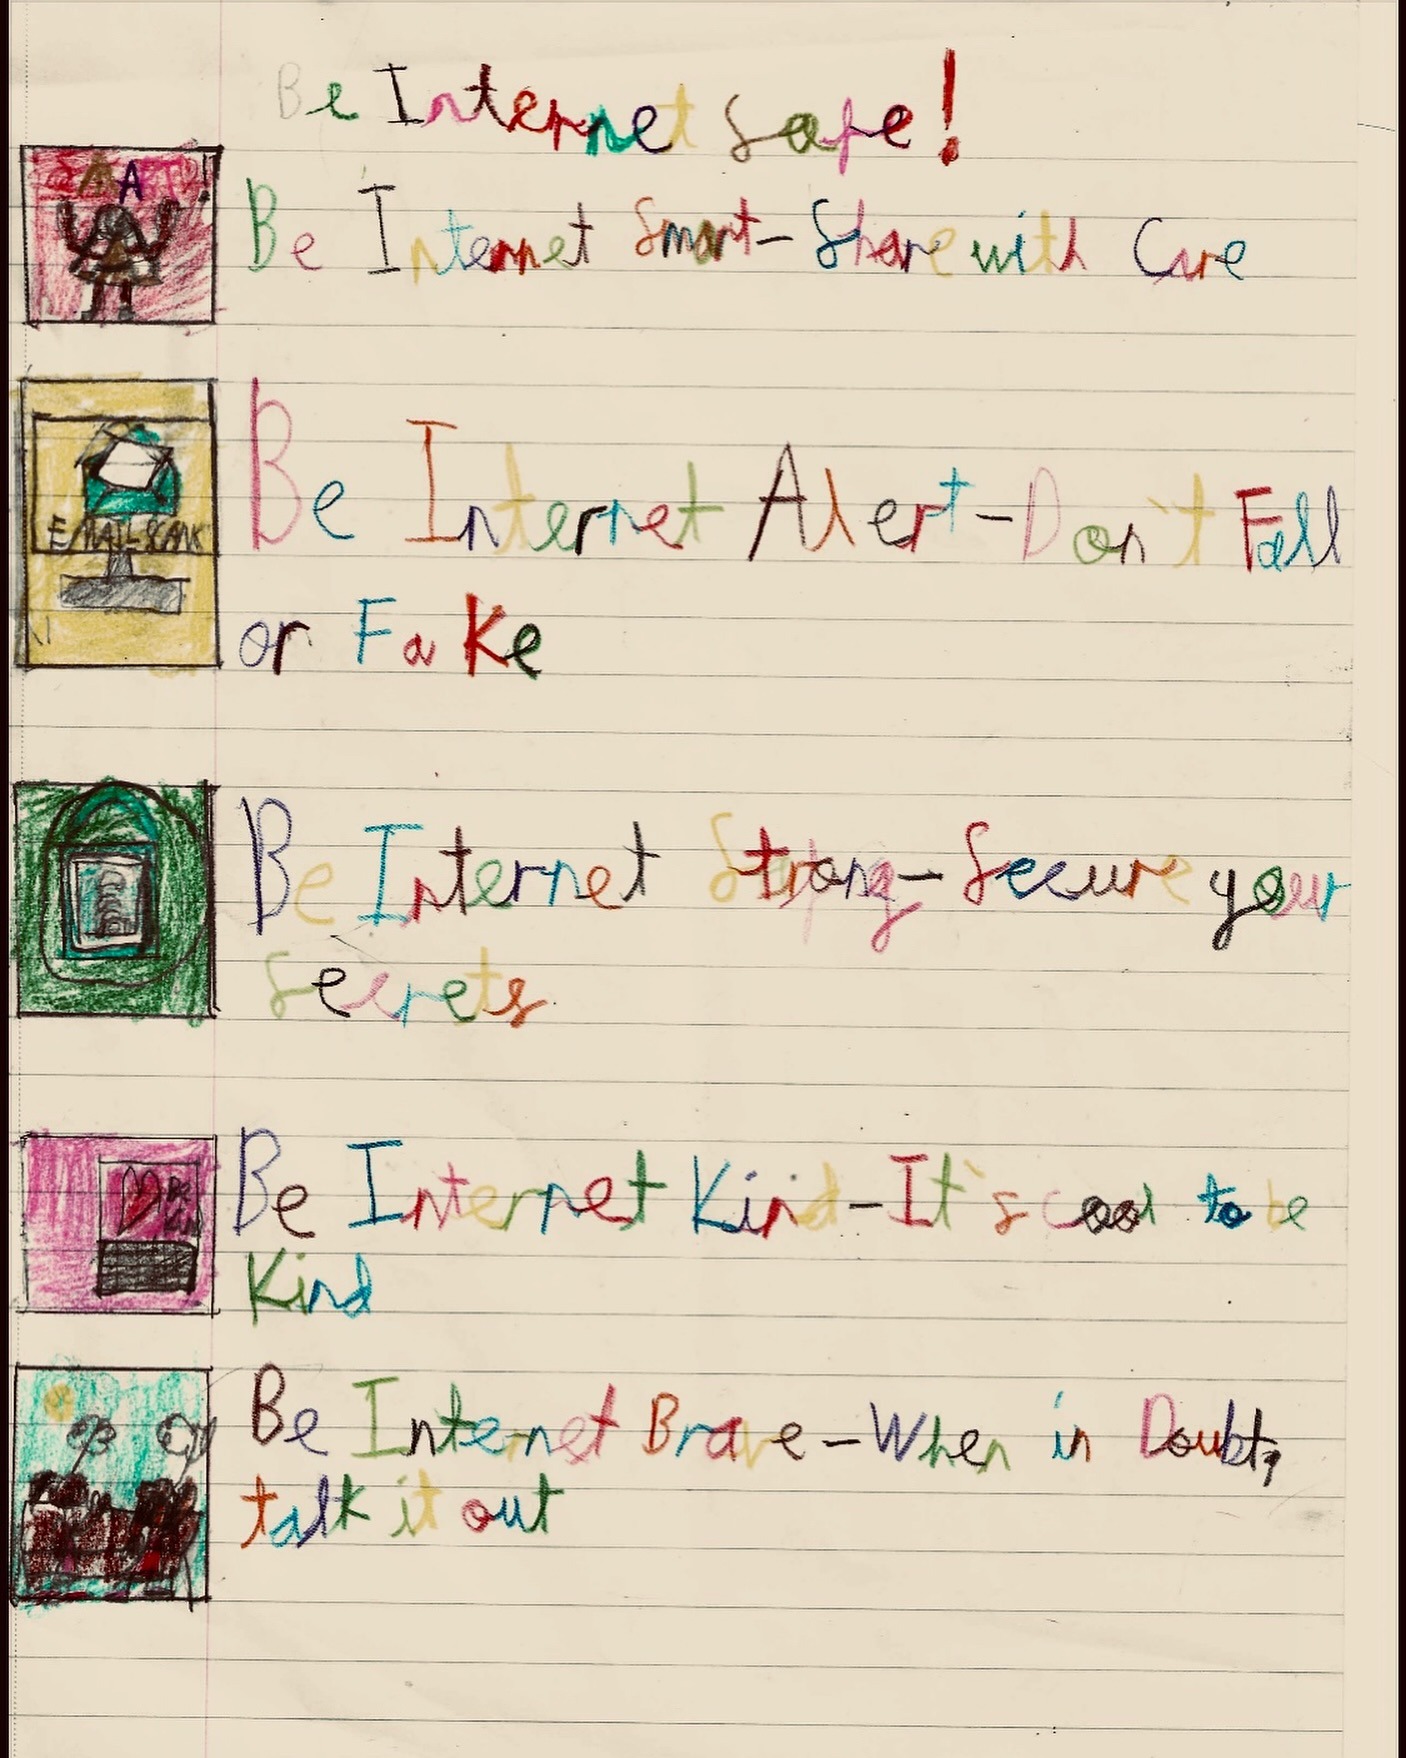 Be Internet safe!
SMART!
Be Internet Smart-Share with Care
Be Internet Alert-Don't Fall
or Fake
E/MAIL-SCAMS
Be Internet Strong-Secure your
Secrets
Be Internet Kind-It's cool to be
Kind
BE
Kind
Be Internet Brave-When in Doubt,
talk it out